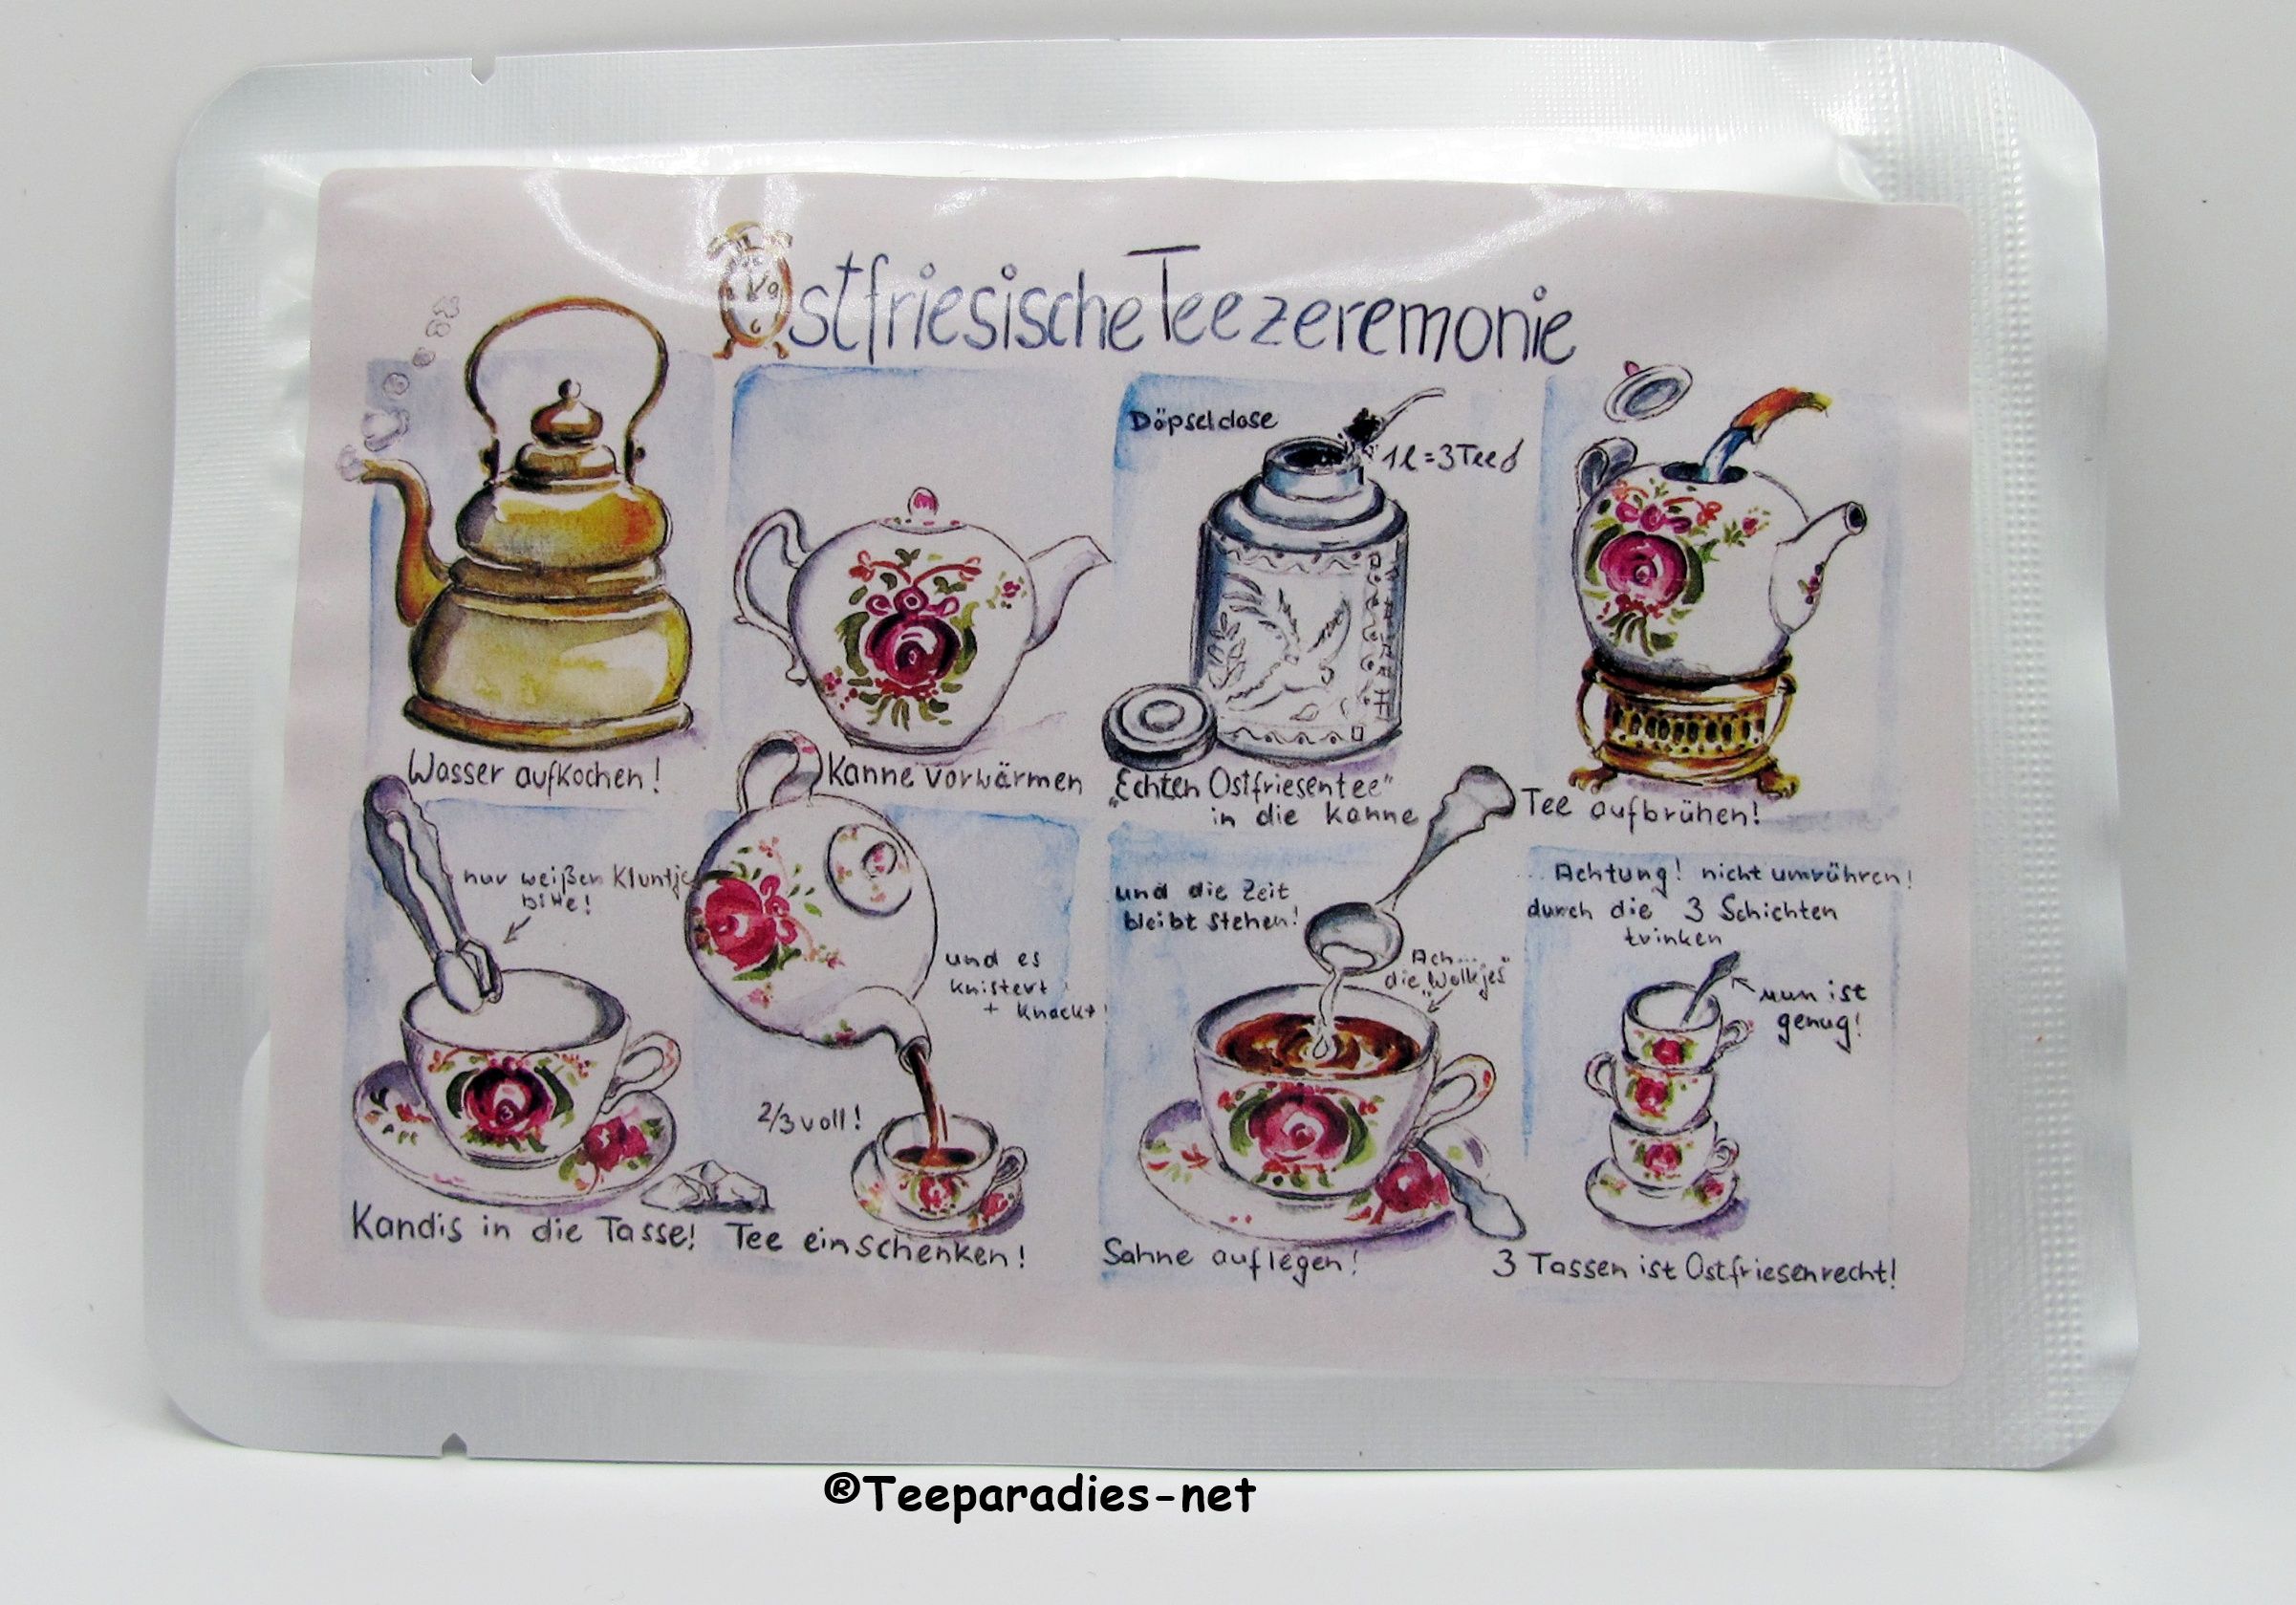 Ostfriesische Teezeremonie
Wasser aufkochen!
Kanne vorwärmen
Döpseldose
1l=3Teel
„Echten Ostfriesentee"
in die Kanne
Tee aufbrühen!
nur weißen Kluntje
bitte!
Kandis in die Tasse!
und es
knistert
+ knackt!
2/3 voll!
Tee einschenken!
und die Zeit
bleibt stehen!
Ach...
die „Wolkjes"
Sahne auflegen!
Achtung! nicht umrühren!
durch die 3 Schichten
trinken
nun ist
genug!
3 Tassen ist Ostfriesenrecht!
®Teeparadies-net